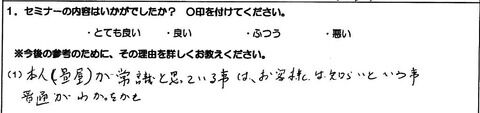 1．セミナーの内容はいかがでしたか？ 〇印を付けてください。
・とても良い ・良い ・ふつう ・悪い
※今後の参考のために、その理由を詳しくお教えください。
(1) 本人(畳屋)が常識と思っている事は、お客様には知らないという事
普通がわか